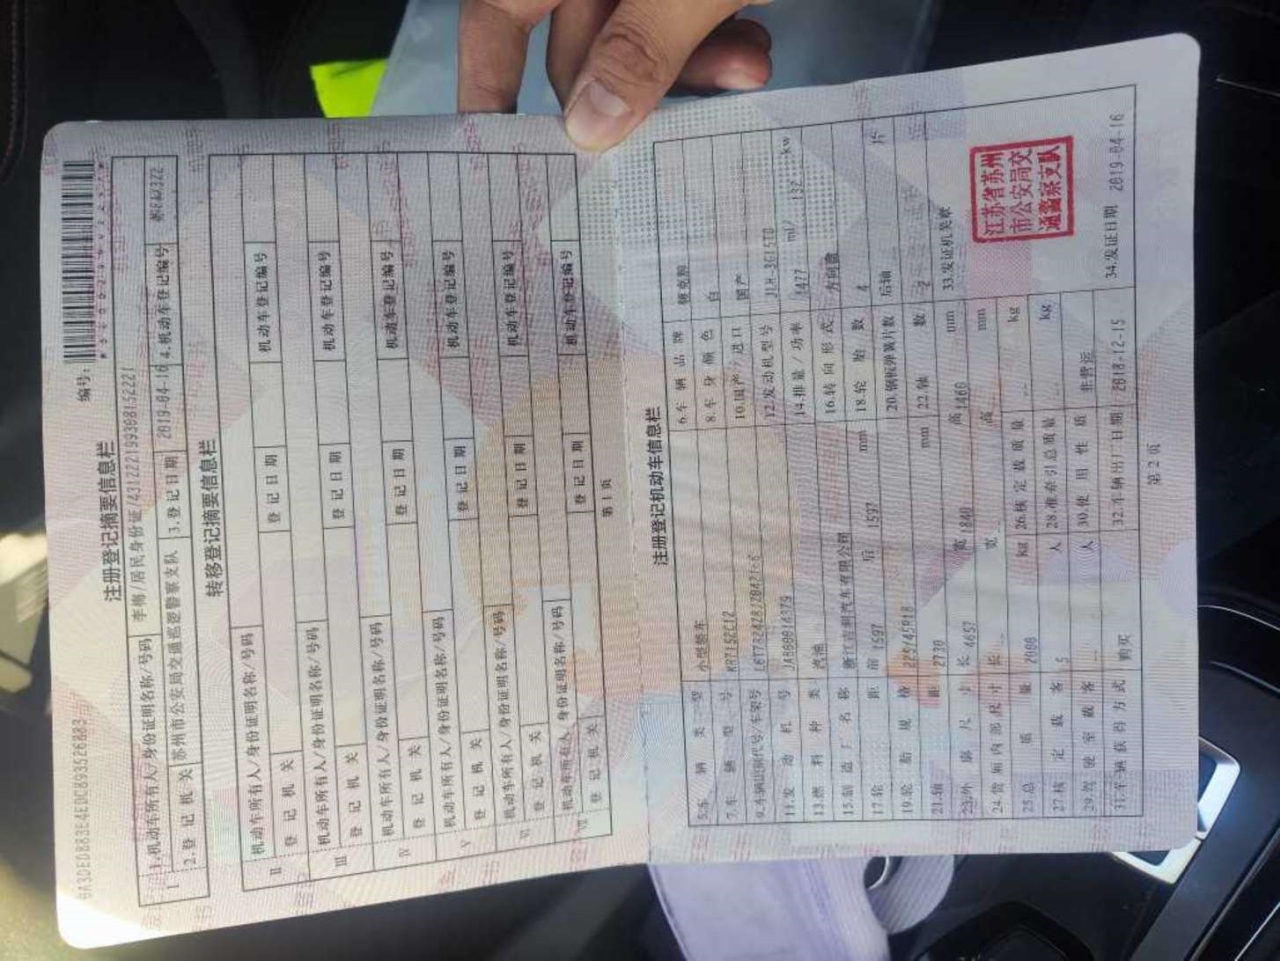 编号：
0A3DEDB83E4EDC893526883
注册登记摘要信息栏
Ⅰ 1.机动车所有人/身份证明名称/号码 李梅/居民身份证/431222199308152221
2.登记机关 苏州市公安局交通巡逻警察支队 3.登记日期 2019-04-16 4.机动车登记编号
转移登记摘要信息栏
Ⅱ 机动车所有人/身份证明名称/号码
登记机关 登记日期 机动车登记编号
Ⅲ 机动车所有人/身份证明名称/号码
登记机关 登记日期 机动车登记编号
Ⅳ 机动车所有人/身份证明名称/号码
登记机关 登记日期 机动车登记编号
Ⅴ 机动车所有人/身份证明名称/号码
登记机关 登记日期 机动车登记编号
Ⅵ 机动车所有人/身份证明名称/号码
登记机关 登记日期 机动车登记编号
Ⅶ 机动车所有人/身份证明名称/号码
登记机关 登记日期 机动车登记编号
第1页
注册登记机动车信息栏
5.车辆类型 小型轿车 6.车辆品牌
7.车辆型号 8.车身颜色 白
9.车辆识别代号/车架号 10.国产/进口 国产
11.发动机号 JAB00014379 12.发动机型号 JLH-3G15TD
13.燃料种类 汽油 14.排量/功率 1477 ml/ 132 kw
15.制造厂名称 浙江吉利汽车有限公司 16.转向形式 方向盘
17.轮距 前 1597 后 1597 mm 18.轮胎数 4
19.轮胎规格 225/45R18 20.钢板弹簧片数 后轴 片
21.轴距 2730 mm 22.轴数 2
23.外廓尺寸 长 4657 宽 1840 高 1460 mm 33.发证机关章
24.货厢内部尺寸 长 宽 高 mm
25.总质量 2000 kg 26.核定载质量 kg
27.核定载客 5 人 28.准牵引总质量 kg
29.驾驶室载客 人 30.使用性质 非营运
31.车辆获得方式 购买 32.车辆出厂日期 2018-12-15 34.发证日期 2019-04-16
江苏省苏州
市公安局交
通警察支队
第2页